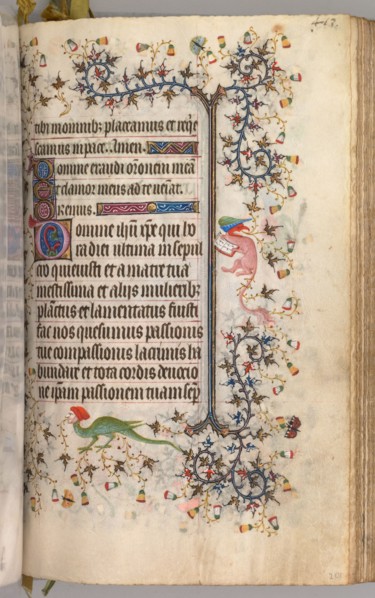 tibi in omnibꝫ placeamus et reqͥe
scamus in pace. Amen.
Domine exaudi orõnem meã
Et clamor meus ad te ueniat.
Oremus.
Domine ihũ xp̃e qui ho
ra diei ultima in sepul
cro quieuisti et a matre tua
mestissima et alijs mulieribꝫ
plãctus et lamentatus fuisti
fac nos quesumus passionis
tue compassionis lacrimis ha
bundare et tota cordis deuocio
ne ip̃am passionem tuam sep̃